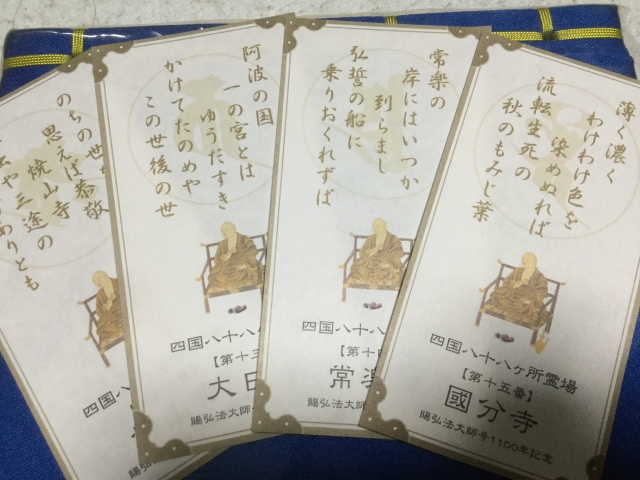 のちの世
思えば恭敬
焼山寺
や三途の
ありとも
四国八十八
賜弘法
阿波の国
一の宮とは
ゆうだすき
かけてたのめや
この世後の世
四国八十八ヶ
【第十三
大日
賜弘法大師号
常楽の
岸にはいつか
到らまし
弘誓の船に
乗りおくれずば
四国八十八ヶ
【第十四
常楽
賜弘法大師号
薄く濃く
わけわけ色を
染めぬれば
流転生死の
秋のもみじ葉
四国八十八ヶ所霊場
【第十五番】
國分寺
賜弘法大師号1100年記念